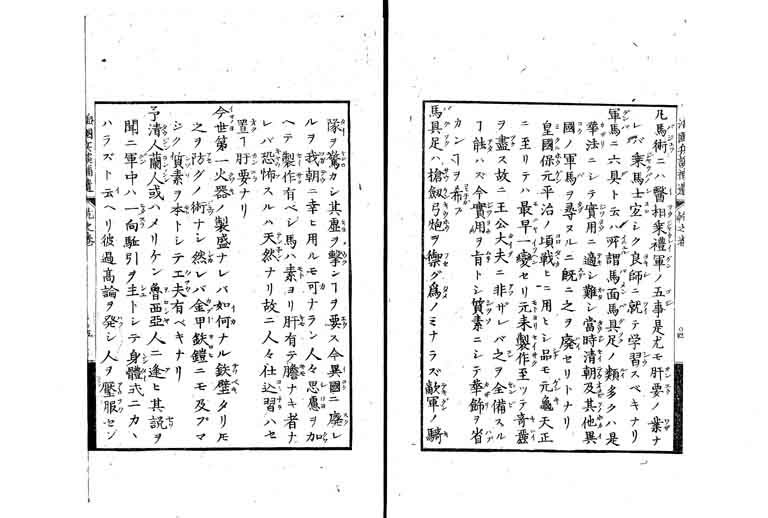 凡馬術ニハ醫相乘禮軍ノ五事是尤モ肝要ノ業ナ
レバ乘馬士宜シク良師ニ就テ学習スベキナリ
軍馬ニ六具ト云ハ所謂馬面馬具足ノ類多クハ是
華法ニシテ實用ニ適シ難シ當時清朝及其他異
國ノ軍馬ヲ尋ヌルニ既ニ之ヲ廃セリトナリ
皇國保元平治ノ頃戦ヒニ用ヒシ品モ元龜天正
ニ至リテハ最早一変セリ元来製作至ツテ奇靈
ヲ盡ス故ニ王公大夫ニ非ザレバ之ヲ全備スル
ヿ能ハズ今實用ヲ旨トシ質素ニシテ華飾ヲ省
カンヿヲ希フ
馬具足ハ搶劔弓炮ヲ禦グ爲ノミナラズ敵軍ノ騎
隊ヲ驚カシ其虚ヲ擊ンヿヲ要ス今異國ニ廃レ
ルヲ我朝ニ幸ヒ用ルモ可ナラン人々思慮ヲ加
ヘテ製作有ベシ馬ハ素ヨリ肝有テ膽ナキ者ナ
レバ恐怖スルハ天然ナリ故ニ人々仕込習ハセ
置ヿ肝要ナリ
今世第一火器ノ製盛ナレバ如何ナル鉄壁タリ𪜈
之ヲ防グノ術ナシ然レバ金甲鉄鎧ニモ及ブマ
シク質素ヲ本トシテ工夫有ベキナリ
予清人蘭人或ハメリケン魯西亞人ニ逢ヒ其説ヲ
聞ニ軍中ハ一向駈引ヲ主トシテ身體弐ニカヽ
ハラズト云ヘリ彼過高論ヲ発シ人ヲ壓服セン